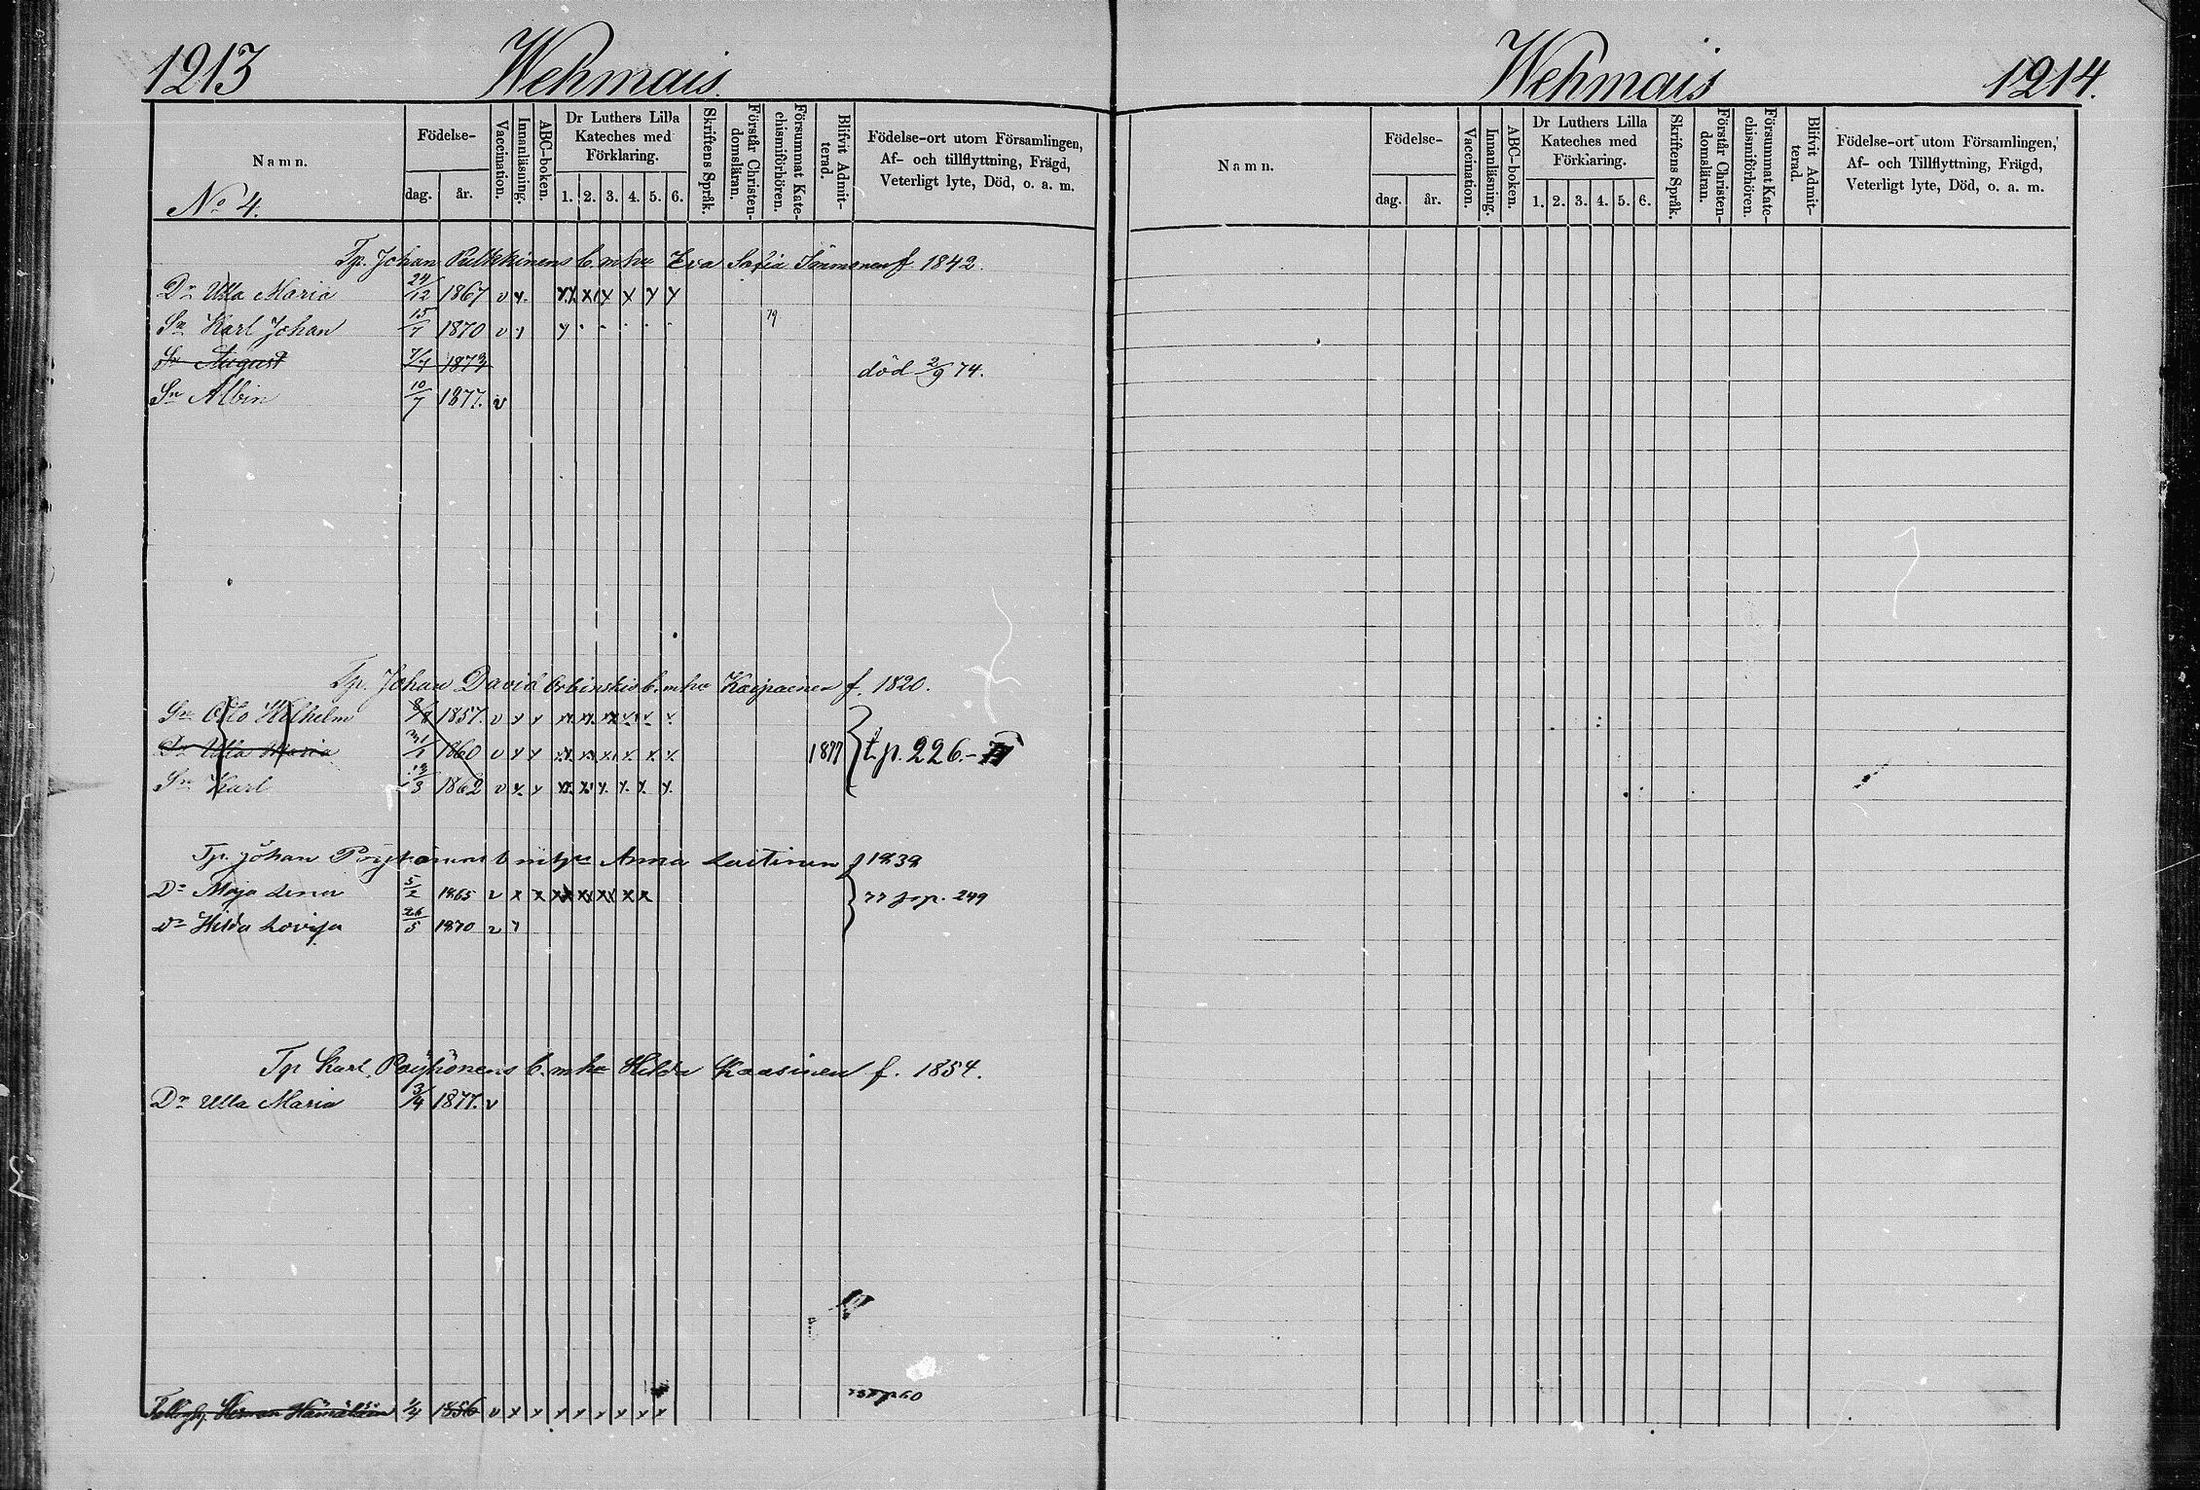 1213 Wehmais.
Namn. Födelse- dag. år. Vaccination. Innanläsning. ABC-boken. Dr Luthers Lilla Kateches med Förklaring. 1. 2. 3. 4. 5. 6. Skriftens Språk. Förstår Christendomsläran. Försummat Katechismiförhören. Blifvit Admitterad. Födelse-ort utom Församlingen, Af- och tillflyttning, Frägd, Veterligt lyte, Död, o. a. m.
No 4.
Tp. Johan Pulkkinens b. m hu Eva Sofia f. 1842.
Dr Ulla Maria 24/12 1867 v x. x x x x x x
79
Sn Karl Johan 15/7 1870 v y y
Sn August 7/4 1873 död 2/9 74.
Sn Albin 10/7 1877. v
Tp. Johan David Orbinskis b. m hu Kaipainen f. 1820.
Sn Otto Wilhelm 1857. v x x x x x x x x
Dr Ulla Maria 31/1 1860 v x x x x x x x x 1877 t. p. 226.-77
Sn Karl 13/3 1862 v x x x x x x x x
Tp. Johan Pöyhönens b m hu Anna Laitinen f 1839
Dr Maja Lena 5/2 1865 v x x x x x x x 77 p. 249
Dr Hilda Lovisa 26/5 1870 v
Tp Karl Pöyhönens b. m hu Hilda Kaasinen f. 1854.
Dr Ulla Maria 3/4 1877. v
Herman Hämäläin 1856 v x x x x x x x x
Wehmais 1214.
Namn. Födelse- dag. år. Vaccination. Innanläsning. ABC-boken. Dr Luthers Lilla Kateches med Förklaring. 1. 2. 3. 4. 5. 6. Skriftens Språk. Förstår Christendomsläran. Försummat Katechismiförhören. Blifvit Admitterad. Födelse-ort utom Församlingen, Af- och Tillflyttning, Frägd, Veterligt lyte, Död, o. a. m.